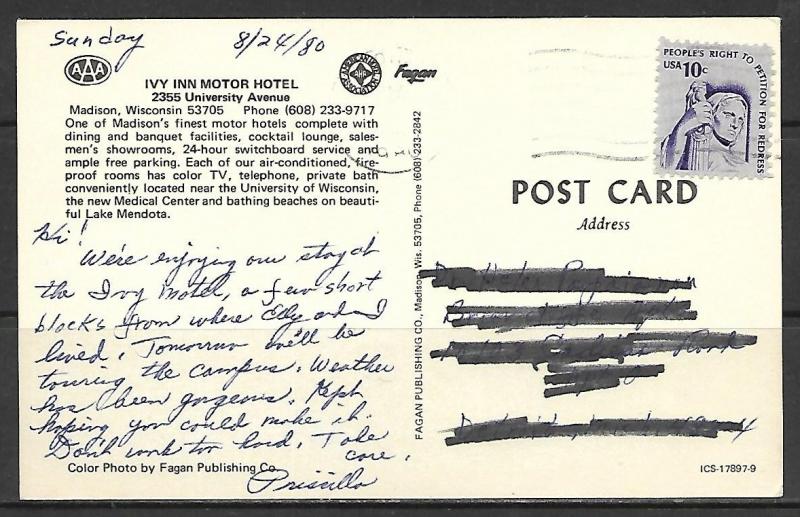 Sunday 8/24/80
AAA
AMERICAN HOTEL ASSOCIATION
AHA
Fagan
IVY INN MOTOR HOTEL
2355 University Avenue
Madison, Wisconsin 53705 Phone (608) 233-9717
One of Madison's finest motor hotels complete with
dining and banquet facilities, cocktail lounge, sales-
men's showrooms, 24-hour switchboard service and
ample free parking. Each of our air-conditioned, fire-
proof rooms has color TV, telephone, private bath
conveniently located near the University of Wisconsin,
the new Medical Center and bathing beaches on beauti-
ful Lake Mendota.
Hi!
We're enjoying our stay at
the Ivy Motel, a few short
blocks from where and I
lived. Tomorrow we'll be
touring the campus. Weather
has been gorgeous. Kept
hoping you could make it.
Don't work too hard. Take
care.
Priscilla
Color Photo by Fagan Publishing Co.
FAGAN PUBLISHING CO., Madison, Wis. 53705, Phone (608) 233-2842
PEOPLE'S RIGHT TO PETITION FOR REDRESS
USA 10c
POST CARD
Address
Road
ICS-17897-9